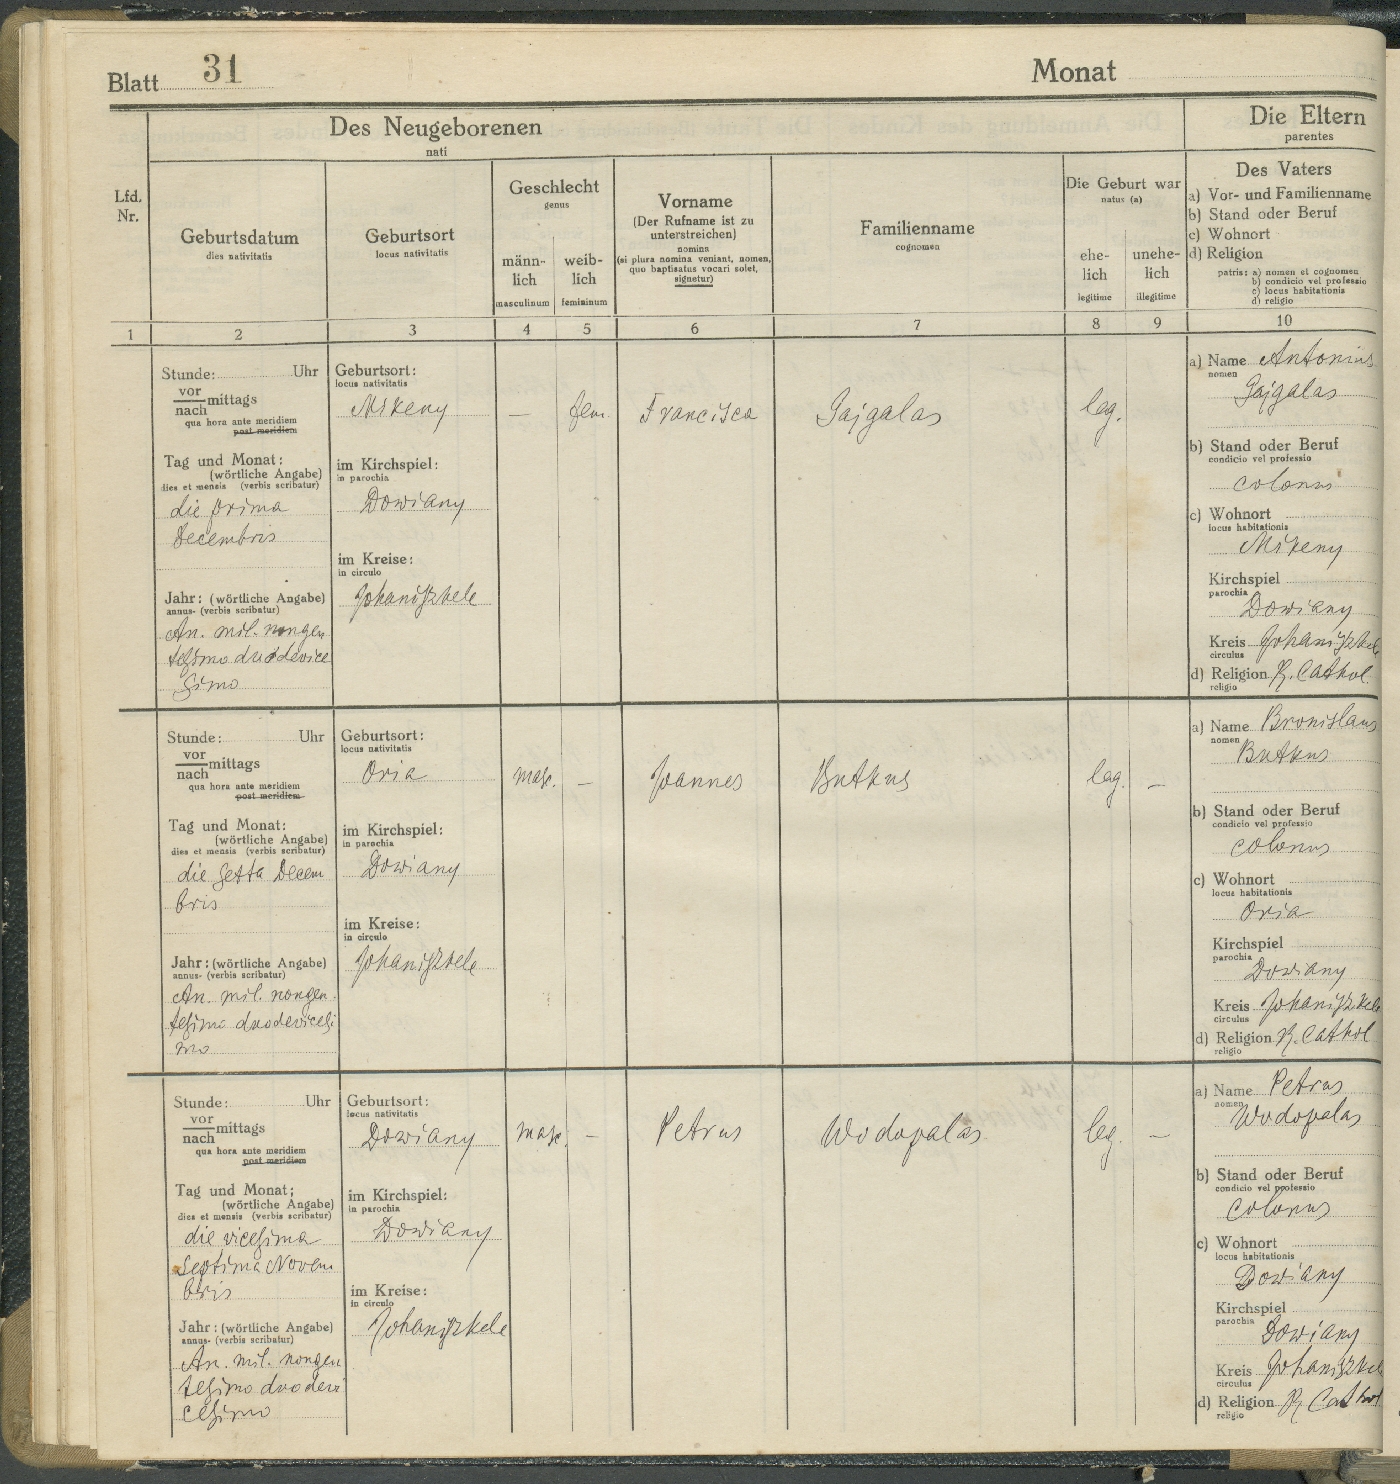 Blatt 31
Monat
Des Neugeborenen
nati
Die Eltern
parentes
Lfd.
Nr.
Geburtsdatum
dies nativitatis
Geburtsort
locus nativitatis
Geschlecht
genus
männ-
lich
masculinum
weib-
lich
femininum
Vorname
(Der Rufname ist zu
unterstreichen)
nomina
(si plura nomina veniant, nomen,
quo baptisatus vocari solet,
signetur)
Familienname
cognomen
Die Geburt war
natus (a)
ehe-
lich
legitime
unehe-
lich
illegitime
Des Vaters
a) Vor- und Familienname
b) Stand oder Beruf
c) Wohnort
d) Religion
patris: a) nomen et cognomen
b) condicio vel professio
c) locus habitationis
d) religio
1 2 3 4 5 6 7 8 9 10
Stunde: Uhr
vor
nach mittags
qua hora ante meridiem
post meridiem
Tag und Monat:
(wörtliche Angabe)
dies et mensis (verbis scribatur)
die prima
Decembris
Jahr: (wörtliche Angabe)
annus- (verbis scribatur)
An. mil. nongen
tesimo duodevice
simo
Geburtsort:
locus nativitatis
Mikeny
im Kirchspiel:
in parochia
Dowiany
im Kreise:
in circulo
Johaniszkele
— fem. Francisca Gajgalas leg.
a) Name Antonius
nomen
Gajgalas
b) Stand oder Beruf
condicio vel professio
colonus
c) Wohnort
locus habitationis
Mikeny
Kirchspiel
parochia
Dowiany
Kreis Johaniszkele
circulus
d) Religion R. Cathol.
religio
Stunde: Uhr
vor
nach mittags
qua hora ante meridiem
post meridiem
Tag und Monat:
(wörtliche Angabe)
dies et mensis (verbis scribatur)
die sexta Decem
bris
Jahr: (wörtliche Angabe)
annus- (verbis scribatur)
An. mil. nongen
tesimo duodevicesi
mo
Geburtsort:
locus nativitatis
Oria
im Kirchspiel:
in parochia
Dowiany
im Kreise:
in circulo
Johaniszkele
masc. — Joannes Butkus leg. —
a) Name Bronislaus
nomen
Butkus
b) Stand oder Beruf
condicio vel professio
colonus
c) Wohnort
locus habitationis
Oria
Kirchspiel
parochia
Dowiany
Kreis Johaniszkele
circulus
d) Religion R. Cathol
religio
Stunde: Uhr
vor
nach mittags
qua hora ante meridiem
post meridiem
Tag und Monat;
(wörtliche Angabe)
dies et mensis (verbis scribatur)
die vicesima
septima Novem
bris
Jahr: (wörtliche Angabe)
annus- (verbis scribatur)
An. mil. nongen
tesimo duodevi
cesimo
Geburtsort:
locus nativitatis
Dowiany
im Kirchspiel:
in parochia
Dowiany
im Kreise:
in circulo
Johaniszkele
masc. — Petrus Wodopalas leg. —
a) Name Petrus
nomen
Wodopalas
b) Stand oder Beruf
condicio vel professio
colonus
c) Wohnort
locus habitationis
Dowiany
Kirchspiel
parochia
Dowiany
Kreis Johaniszkel
circulus
d) Religion R Cathol
religio